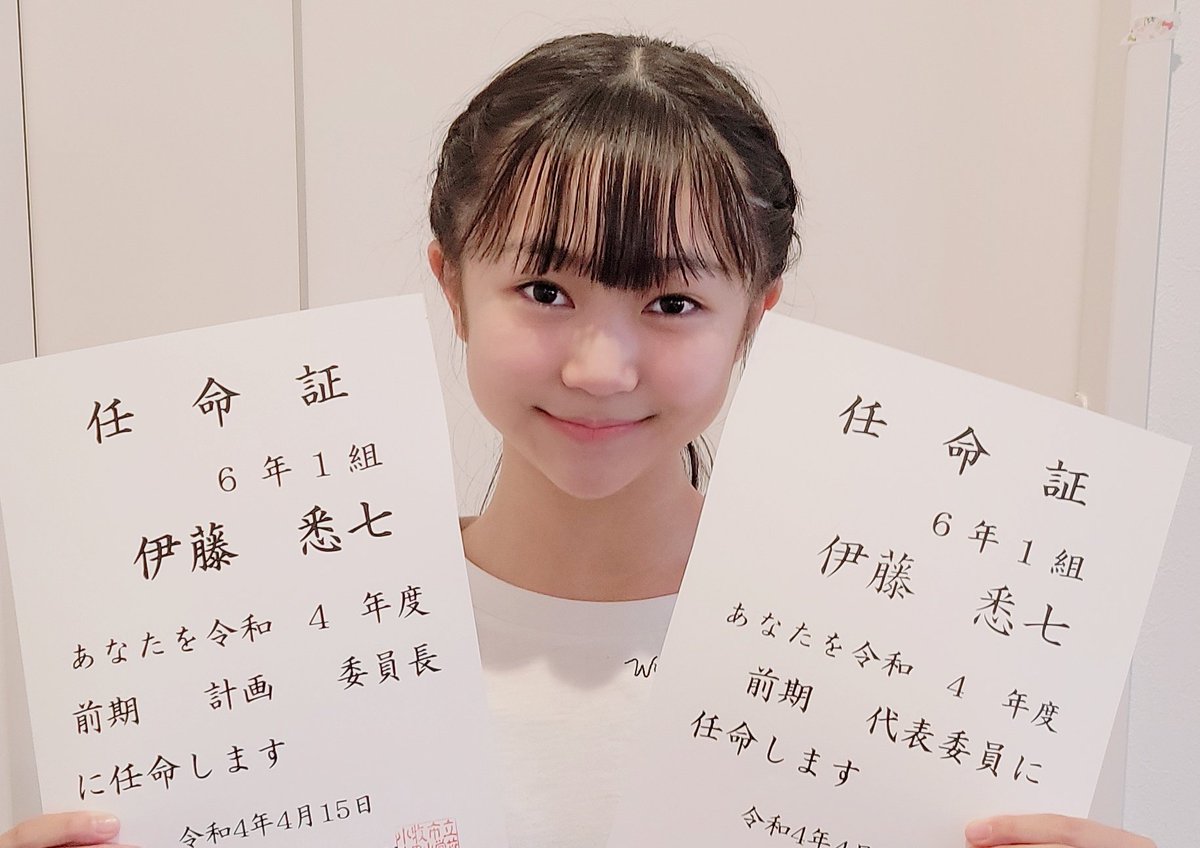 任命証
6年1組
伊藤 悉七
あなたを令和 4 年度
前期 計画 委員長
に任命します
令和4年4月15日
小牧市立
任命証
6年1組
伊藤 悉七
あなたを令和 4 年度
前期 代表委員に
任命します
令和4年4月